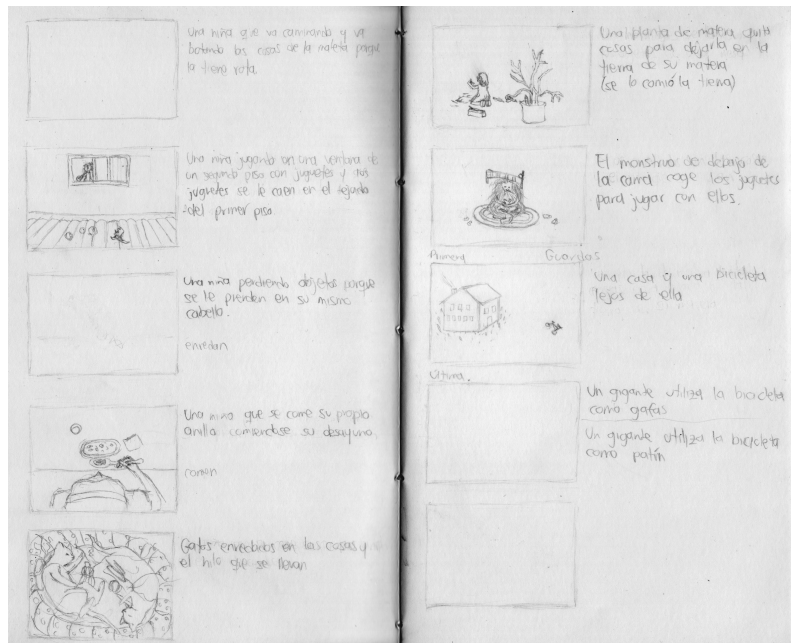 Una niña que va caminando y va
botando las cosas de la maleta porque
la tiene rota.
Una niña jugando en una ventana de
un segundo piso con juguetes y sus
juguetes se le caen en el tejado
del primer piso.
Una niña perdiendo objetos porque
se le pierden en su mismo
cabello.
enredan
Una niña que se come su propio
anillo comiendose su desayuno.
comun
Gatos enredados en las cosas y
el hilo que se llevan
Una planta de matera quita
cosas para dejarla en la
tierra de su matera
(se lo comió la tierra)
El monstruo de debajo de
la cama coge los juguetes
para jugar con ellos.
Primera Guardas
una casa y una bicicleta
lejos de ella
Última.
Un gigante utiliza la bicicleta
como gafas
Un gigante utiliza la bicicleta
como patín